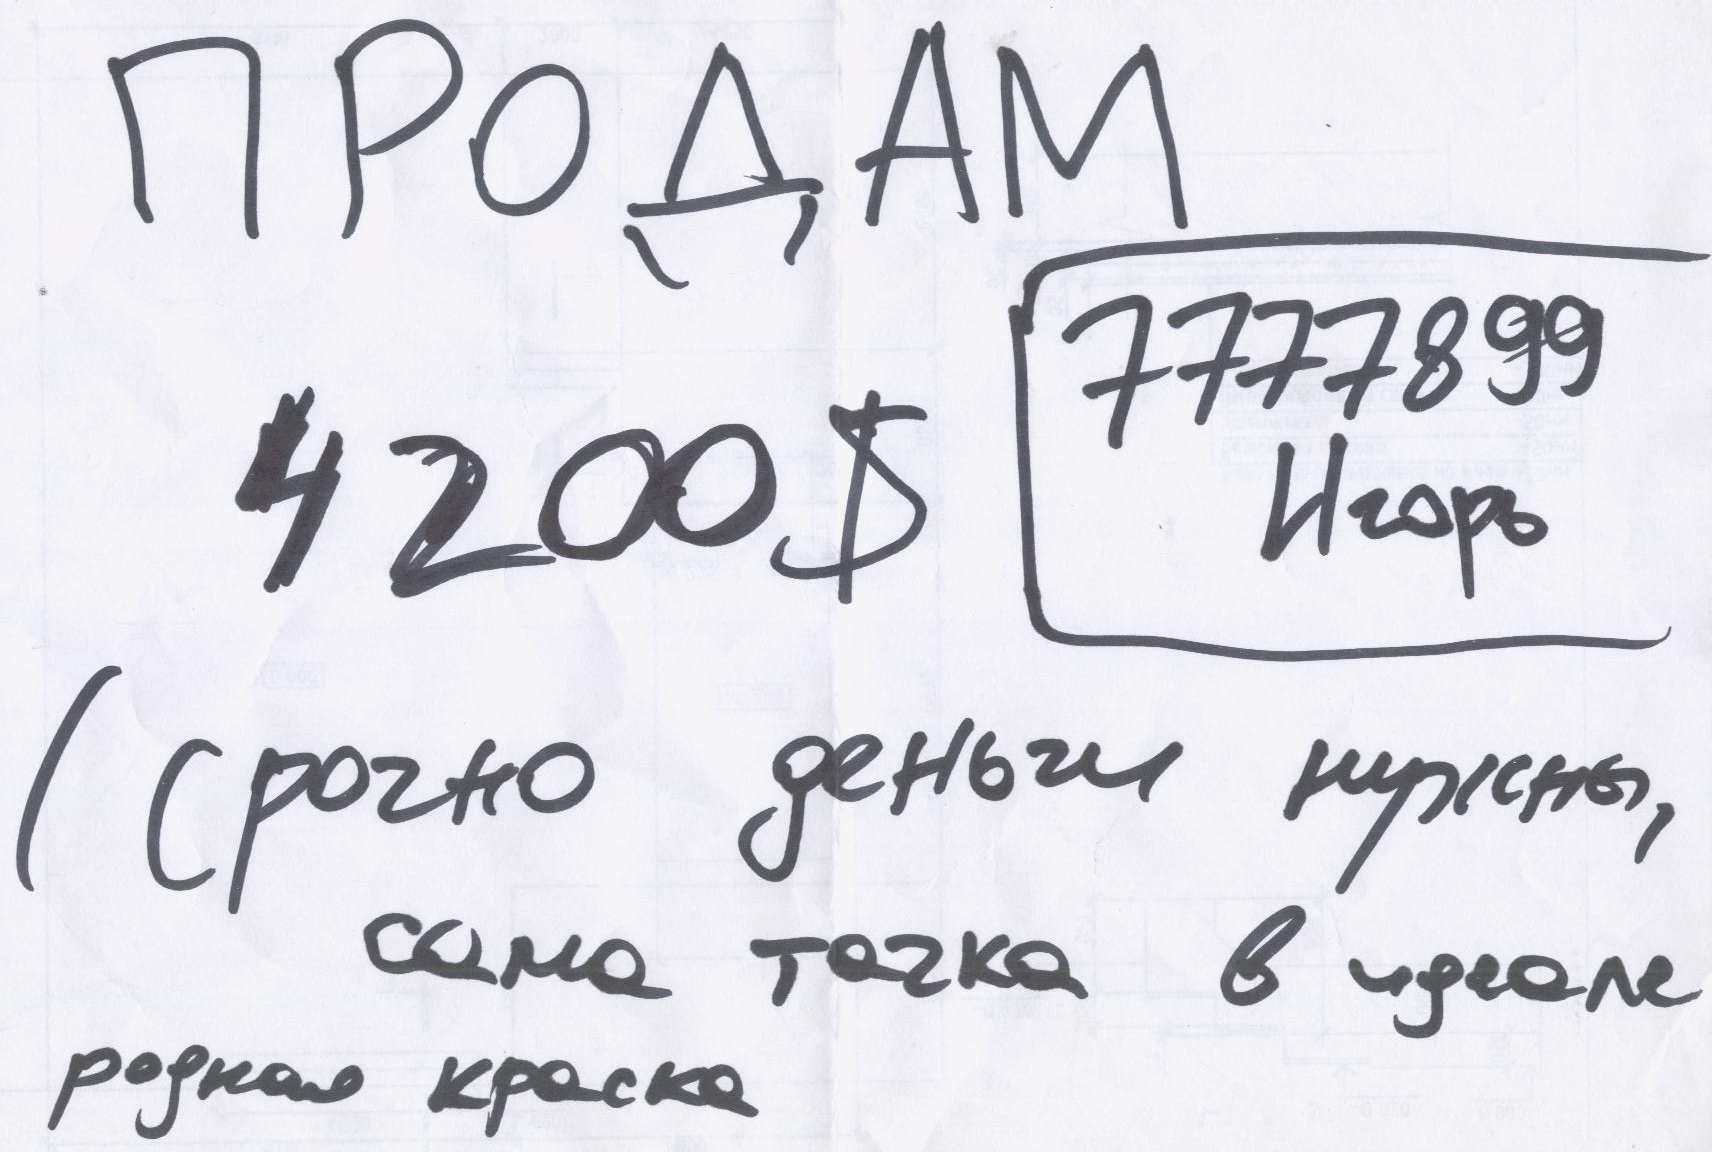 ПРОДАМ
7777899
4200$
Игорь
(Срочно деньги нужны,
сама тачка в идеале
родная краска